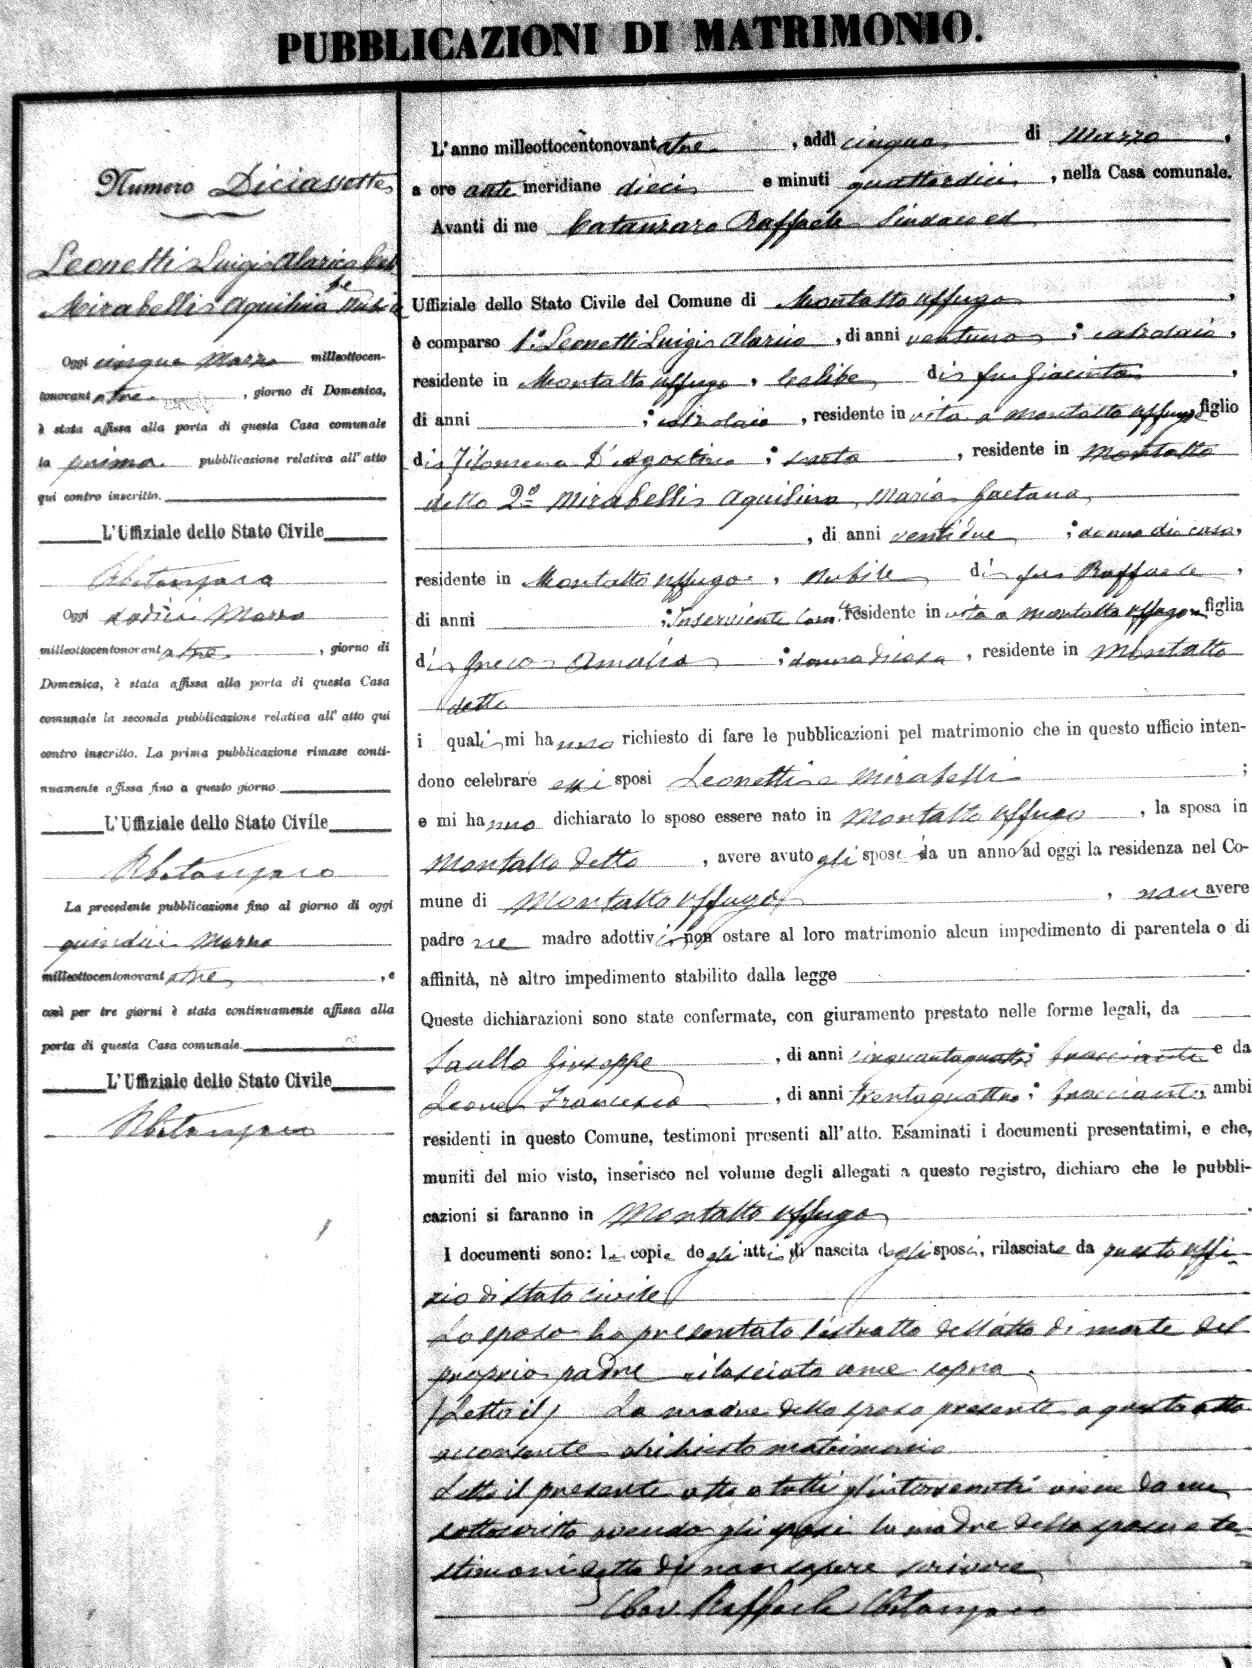 PUBBLICAZIONI DI MATRIMONIO.
Numero Diciassette
Leonetti Luigi Alarico
Mirabelli Aquilina
Oggi cinque Marzo milleottocen-
tonovantatre, giorno di Domenica,
è stata affissa alla porta di questa Casa comunale
la prima pubblicazione relativa all'atto
qui contro inscritto.
L'Uffiziale dello Stato Civile
RCatanzaro
Oggi dodici Marzo
milleottocentonovantatre, giorno di
Domenica, è stata affissa alla porta di questa Casa
comunale la seconda pubblicazione relativa all'atto qui
contro inscritto. La prima pubblicazione rimase conti-
nuamente affissa fino a questo giorno.
L'Uffiziale dello Stato Civile
RCatanzaro
La precedente pubblicazione fino al giorno di oggi
quindici Marzo
milleottocentonovantatre, e
così per tre giorni è stata continuamente affissa alla
porta di questa Casa comunale.
L'Uffiziale dello Stato Civile
RCatanzaro
L'anno milleottocentonovantatre, addì cinque di Marzo,
a ore ante meridiane dieci e minuti quattordici, nella Casa comunale.
Avanti di me Catanzaro Raffaele Sindaco ed
Uffiziale dello Stato Civile del Comune di Montalto Uffugo,
è comparso 1º Leonetti Luigi Alarico, di anni ventuno; calzolaio,
residente in Montalto Uffugo, celibe di fu Giacinto,
di anni ; calzolaio, residente in vita a Montalto Uffugo figlio
di Filomena D'Agostino; sarta, residente in Montalto
detto 2º Mirabelli Aquilina, Maria, Gaetana,
, di anni ventidue; donna di casa,
residente in Montalto Uffugo, nubile di fu Raffaele,
di anni ; Inserviente Com. residente in vita a Montalto Uffugo figlia
di Greco Amalia; donna di casa, residente in Montalto
detto
i quali mi hanno richiesto di fare le pubblicazioni pel matrimonio che in questo ufficio inten-
dono celebrare essi sposi Leonetti e Mirabelli;
e mi hanno dichiarato lo sposo essere nato in Montalto Uffugo, la sposa in
Montalto detto, avere avuto gli sposi da un anno ad oggi la residenza nel Co-
mune di Montalto Uffugo, non avere
padre ne madre adottivi, non ostare al loro matrimonio alcun impedimento di parentela o di
affinità, nè altro impedimento stabilito dalla legge.
Queste dichiarazioni sono state confermate, con giuramento prestato nelle forme legali, da
Saullo Giuseppe, di anni cinquantaquattro; bracciante e da
Leone Francesco, di anni trentaquattro; bracciante, ambi
residenti in questo Comune, testimoni presenti all'atto. Esaminati i documenti presentatimi, e che,
muniti del mio visto, inserisco nel volume degli allegati a questo registro, dichiaro che le pubbli-
cazioni si faranno in Montalto Uffugo.
I documenti sono: le copie degli atti di nascita degli sposi, rilasciate da questo uffi-
zio di stato civile
Lo sposo ha presentato l'estratto dell'atto di morte del
proprio padre rilasciato come sopra.
(Letto il) La madre dello sposo presente a questo atto
acconsente al richiesto matrimonio
Letto il presente atto a tutti gl'intervenuti viene da me
sottoscritto avendo gli sposi la madre dello sposo e te-
stimoni detto di non sapere scrivere
Cav. Raffaele Catanzaro